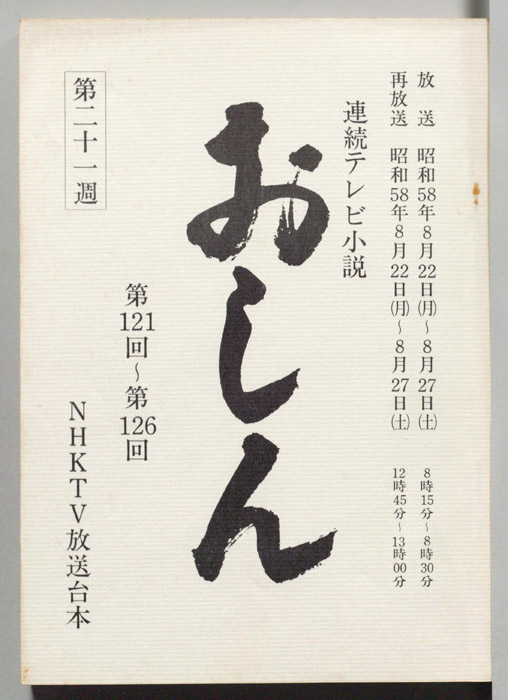 放送 昭和58年8月22日(月)～8月27日(土) 8時15分～8時30分
再放送 昭和58年8月22日(月)～8月27日(土) 12時45分～13時00分
連続テレビ小説
おしん
第121回～第126回
第二十一週
NHKTV放送台本